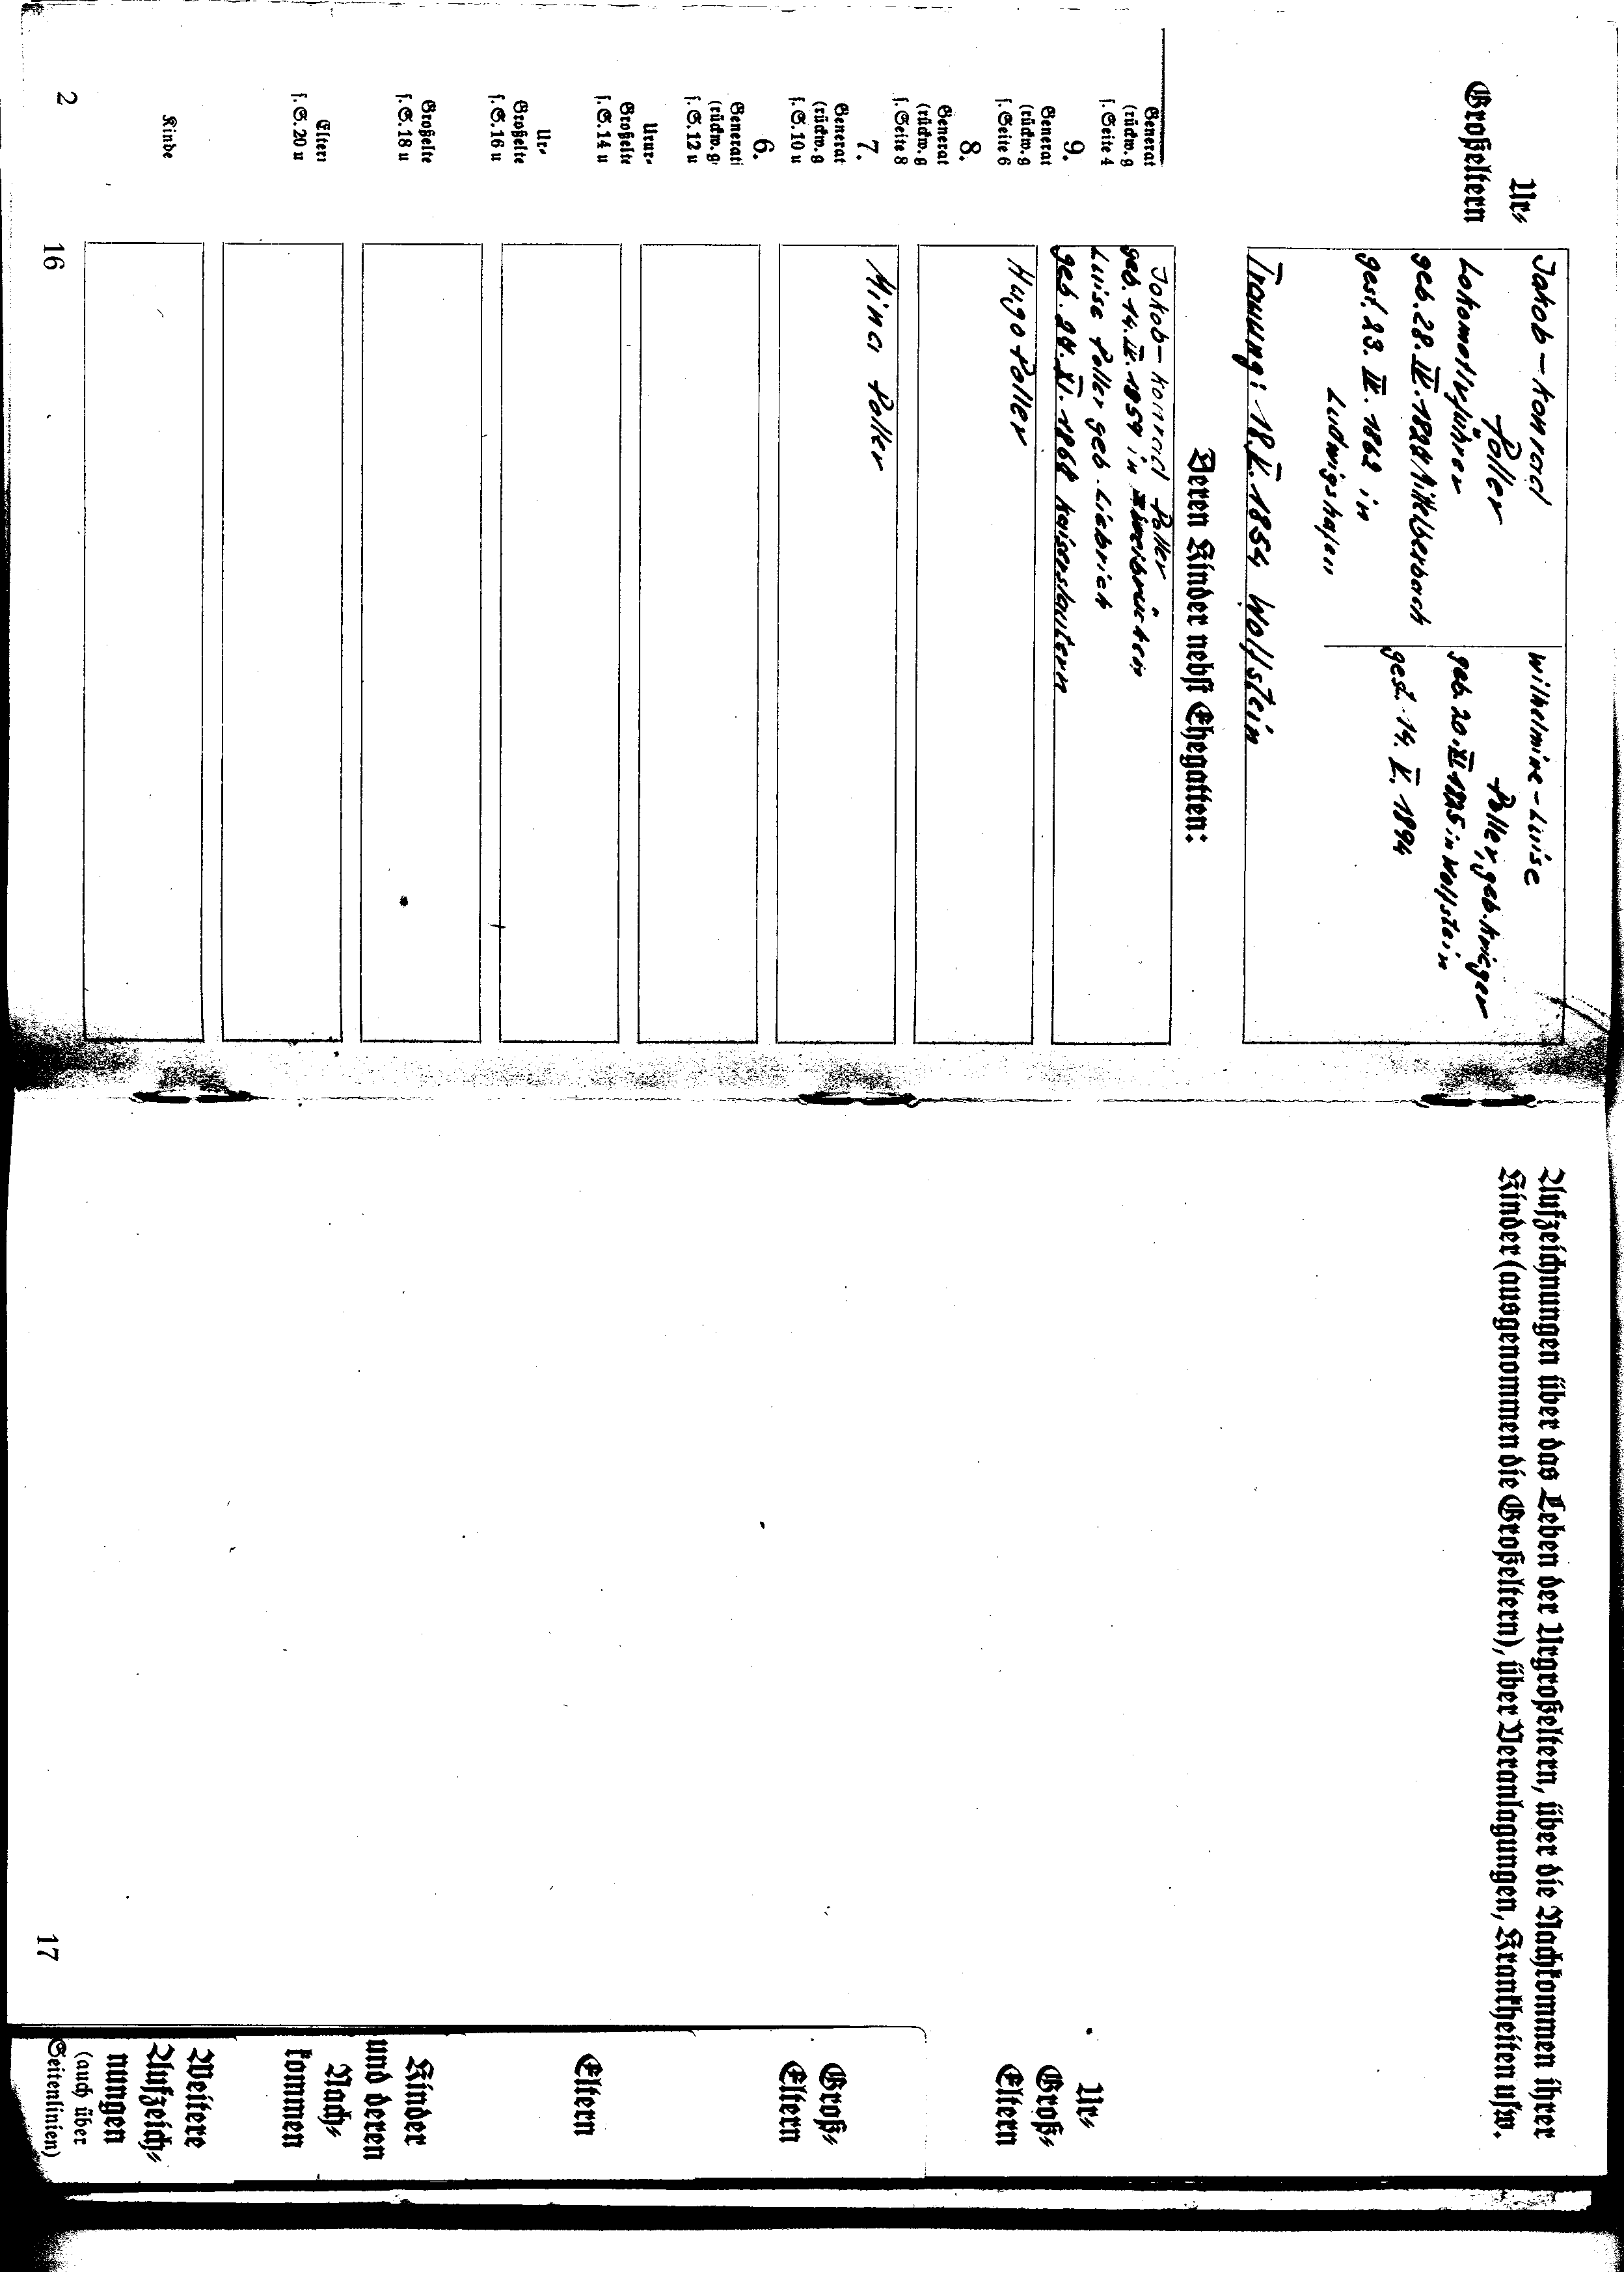 Ur-
Großeltern
Jakob-Konrad
Poller
Lokomotivführer
geb. 28. IV. 1828 Mittelbexbach
gest. 23. III. 1862 in
Ludwigshafen
Wilhelmine-Luise
Poller, geb. Krieger
geb. 20. XI. 1825 in Wolfstein
gest. 14. V. 1894
Trauung: 18. V. 1854 Wolfstein
Deren Kinder nebst Ehegatten:
Jakob-Konrad Poller
geb. 14. IX. 1859 in Zweibrücken
Luise Poller geb. Liebrich
geb. 24. XI. 1864 Kaiserslautern
Hugo Poller
Mina Poller
Generat
(rückw. g
s. Seite 4
9.
Generat
(rückw. g
s. Seite 6
8.
Generat
(rückw. g
s. Seite 8
7.
Generat
(rückw. g
s. S. 10 u
6.
Generati
(rückw. g
s. S. 12 u
Urur-
Großelte
s. S. 14 u
Ur-
Großelte
s. S. 16 u
Großelte
s. S. 18 u
Eltern
s. S. 20 u
Kinde
2
16
Aufzeichnungen über das Leben der Urgroßeltern, über die Nachkommen ihrer
Kinder (ausgenommen die Großeltern), über Veranlagungen, Krankheiten usw.
17
Ur-
Groß-
Eltern
Groß-
Eltern
Eltern
Kinder
und deren
Nach-
kommen
Weitere
Aufzeich-
nungen
(auch über
Seitenlinien)